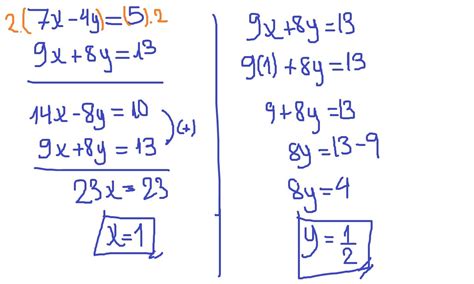 2.(7x-4y)=(5).2
9x+8y=13
14x-8y=10
9x+8y=13
(+)
23x=23
x=1
9x+8y=13
9(1)+8y=13
9+8y=13
8y=13-9
8y=4
y=1/2